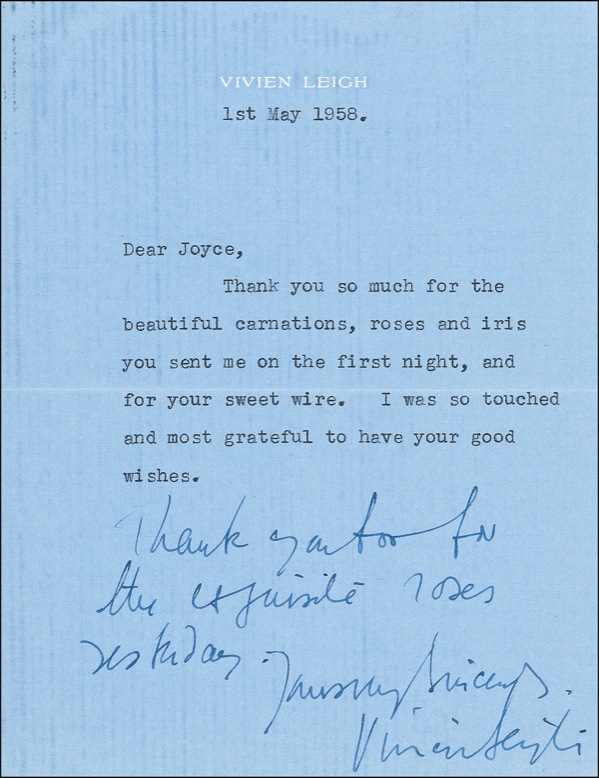 VIVIEN LEIGH
1st May 1958.
Dear Joyce,
Thank you so much for the
beautiful carnations, roses and iris
you sent me on the first night, and
for your sweet wire. I was so touched
and most grateful to have your good
wishes.
Thank you too for
the exquisite roses
yesterday.
Yours very sincerely.
Vivien Leigh